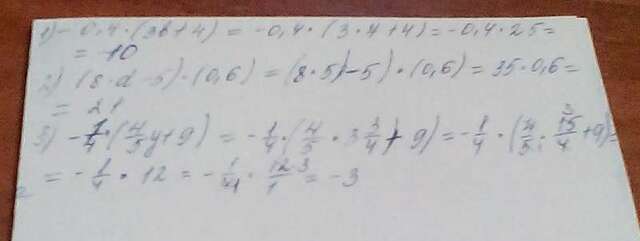 1) -0,4·(3b+4) = -0,4·(3·7+4) = -0,4·25 =
= -10
2) (8·d-5)·(0,6) = (8·5)-5)·(0,6) = 35·0,6 =
= 21
3) -1/4·(4/5y+9) = -1/4·(4/5·3 3/4)+9) = -1/4·(4/5·15/4+9) =
= -1/4·12 = -1/4·12/1 = -3